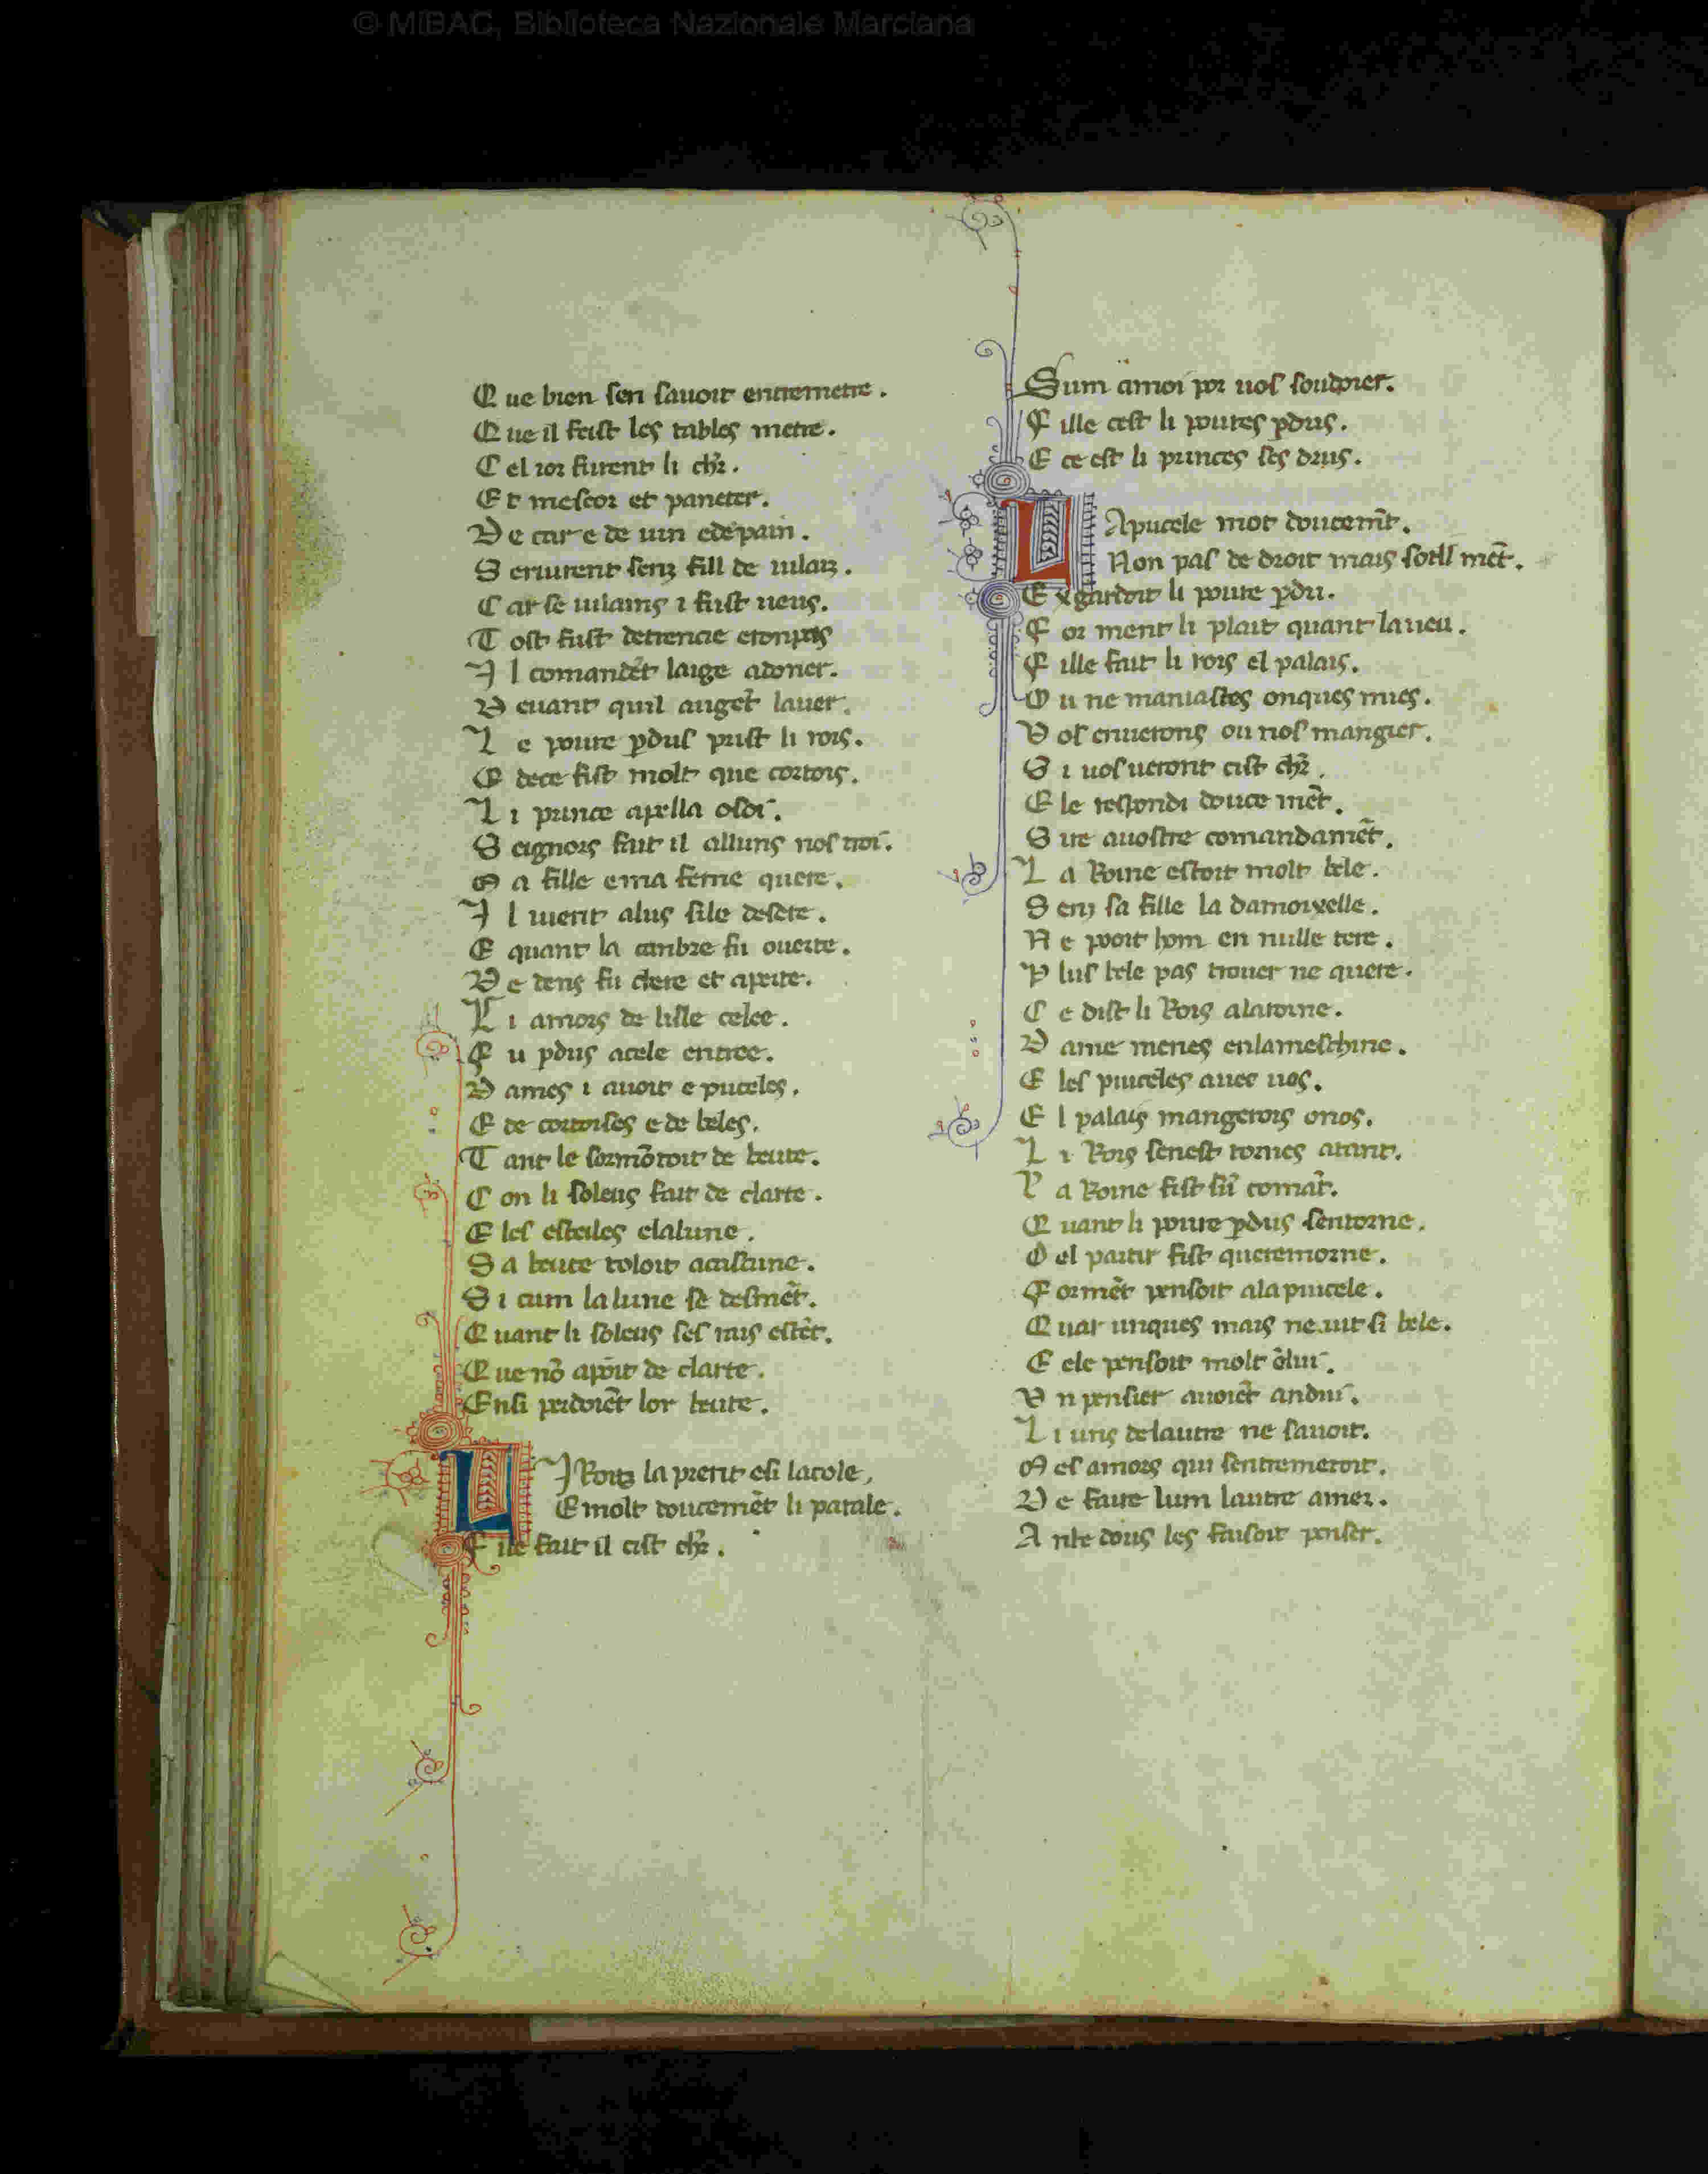 © MiBAC, Biblioteca Nazionale Marciana
Que bien sen sauoit entremetre.
Que il feist les tables metre.
Cel ior furent li chr̃.
Et mescor et paneter.
De car e de uin e de pain.
Seruirent senz fill de uilain.
Car se uilains i fust ueuς.
Tost fust detrencie
Il comandẽt laige a doner.
Deuant quil auget̃ lauer.
Le poure ꝑdus prist li rois.
E de ce fist molt que cortois.
Li prince apella
Seignors fait il alluns nos troi.
Ma fille e ma feme quere.
Il uient a lus si le desere.
E quant la cambre fu ouerte.
Dedens fu clere et aperte.
Li amors de lisle celee.
Fu ꝑdus a cele entree.
Dames i auoit e puceles.
E de cortoises e de beles.
Tant le sormõtoit de beute.
Con li soleus fait de clarte.
E les esteiles e la lune.
Sa beute toloit a cascune.
Si cum la lune se desmẽt.
Quant li soleus ses rais estẽt.
Que nõ apoit de clarte.
Ensi perdoiẽt lor beute.
LI Rois la prent e si lacole,
E molt doucemẽt li parole.
File fait il cist chr̃.
Sum a moi por uos soudoier.
Fille cest li poures ꝑdus.
E ce est li princes ses drus.
LA pucele mot doucem̃t.
Non pas de droit mais mẽt.
Esgardoit li poure ꝑdu.
Forment li plait quant la ueu.
Fille fait li rois el palais.
Ou ne maniastes onques mies.
Vos enuerons ou nos mangier.
Si uos ueront cist chr̃.
Ele respondi doucemẽt.
Sire a uostre comandamẽt.
La Roine estoit molt bele.
Senz sa fille la damoixelle.
Ne poit hom en nulle tere.
Plus bele pas trouer ne quere.
Ce dist li Rois a la roine.
Dame menes en la meschine.
E les puceles auec uos.
El palais mangerois o nos.
Li Rois senest tornes atant.
La Roine fist comãt.
Quant li poure ꝑdus sentorne.
Del partir fist quere morne.
Formẽt pensoit a la pucele.
Quar unques mais ne uit si bele.
E ele pensoit molt
Vn pensier auoiẽt andui.
Li uns de lautre ne sauoit.
Mes amors qui sentremetoit.
De faire lum lautre amer.
Anbe dous les faisoit penser.